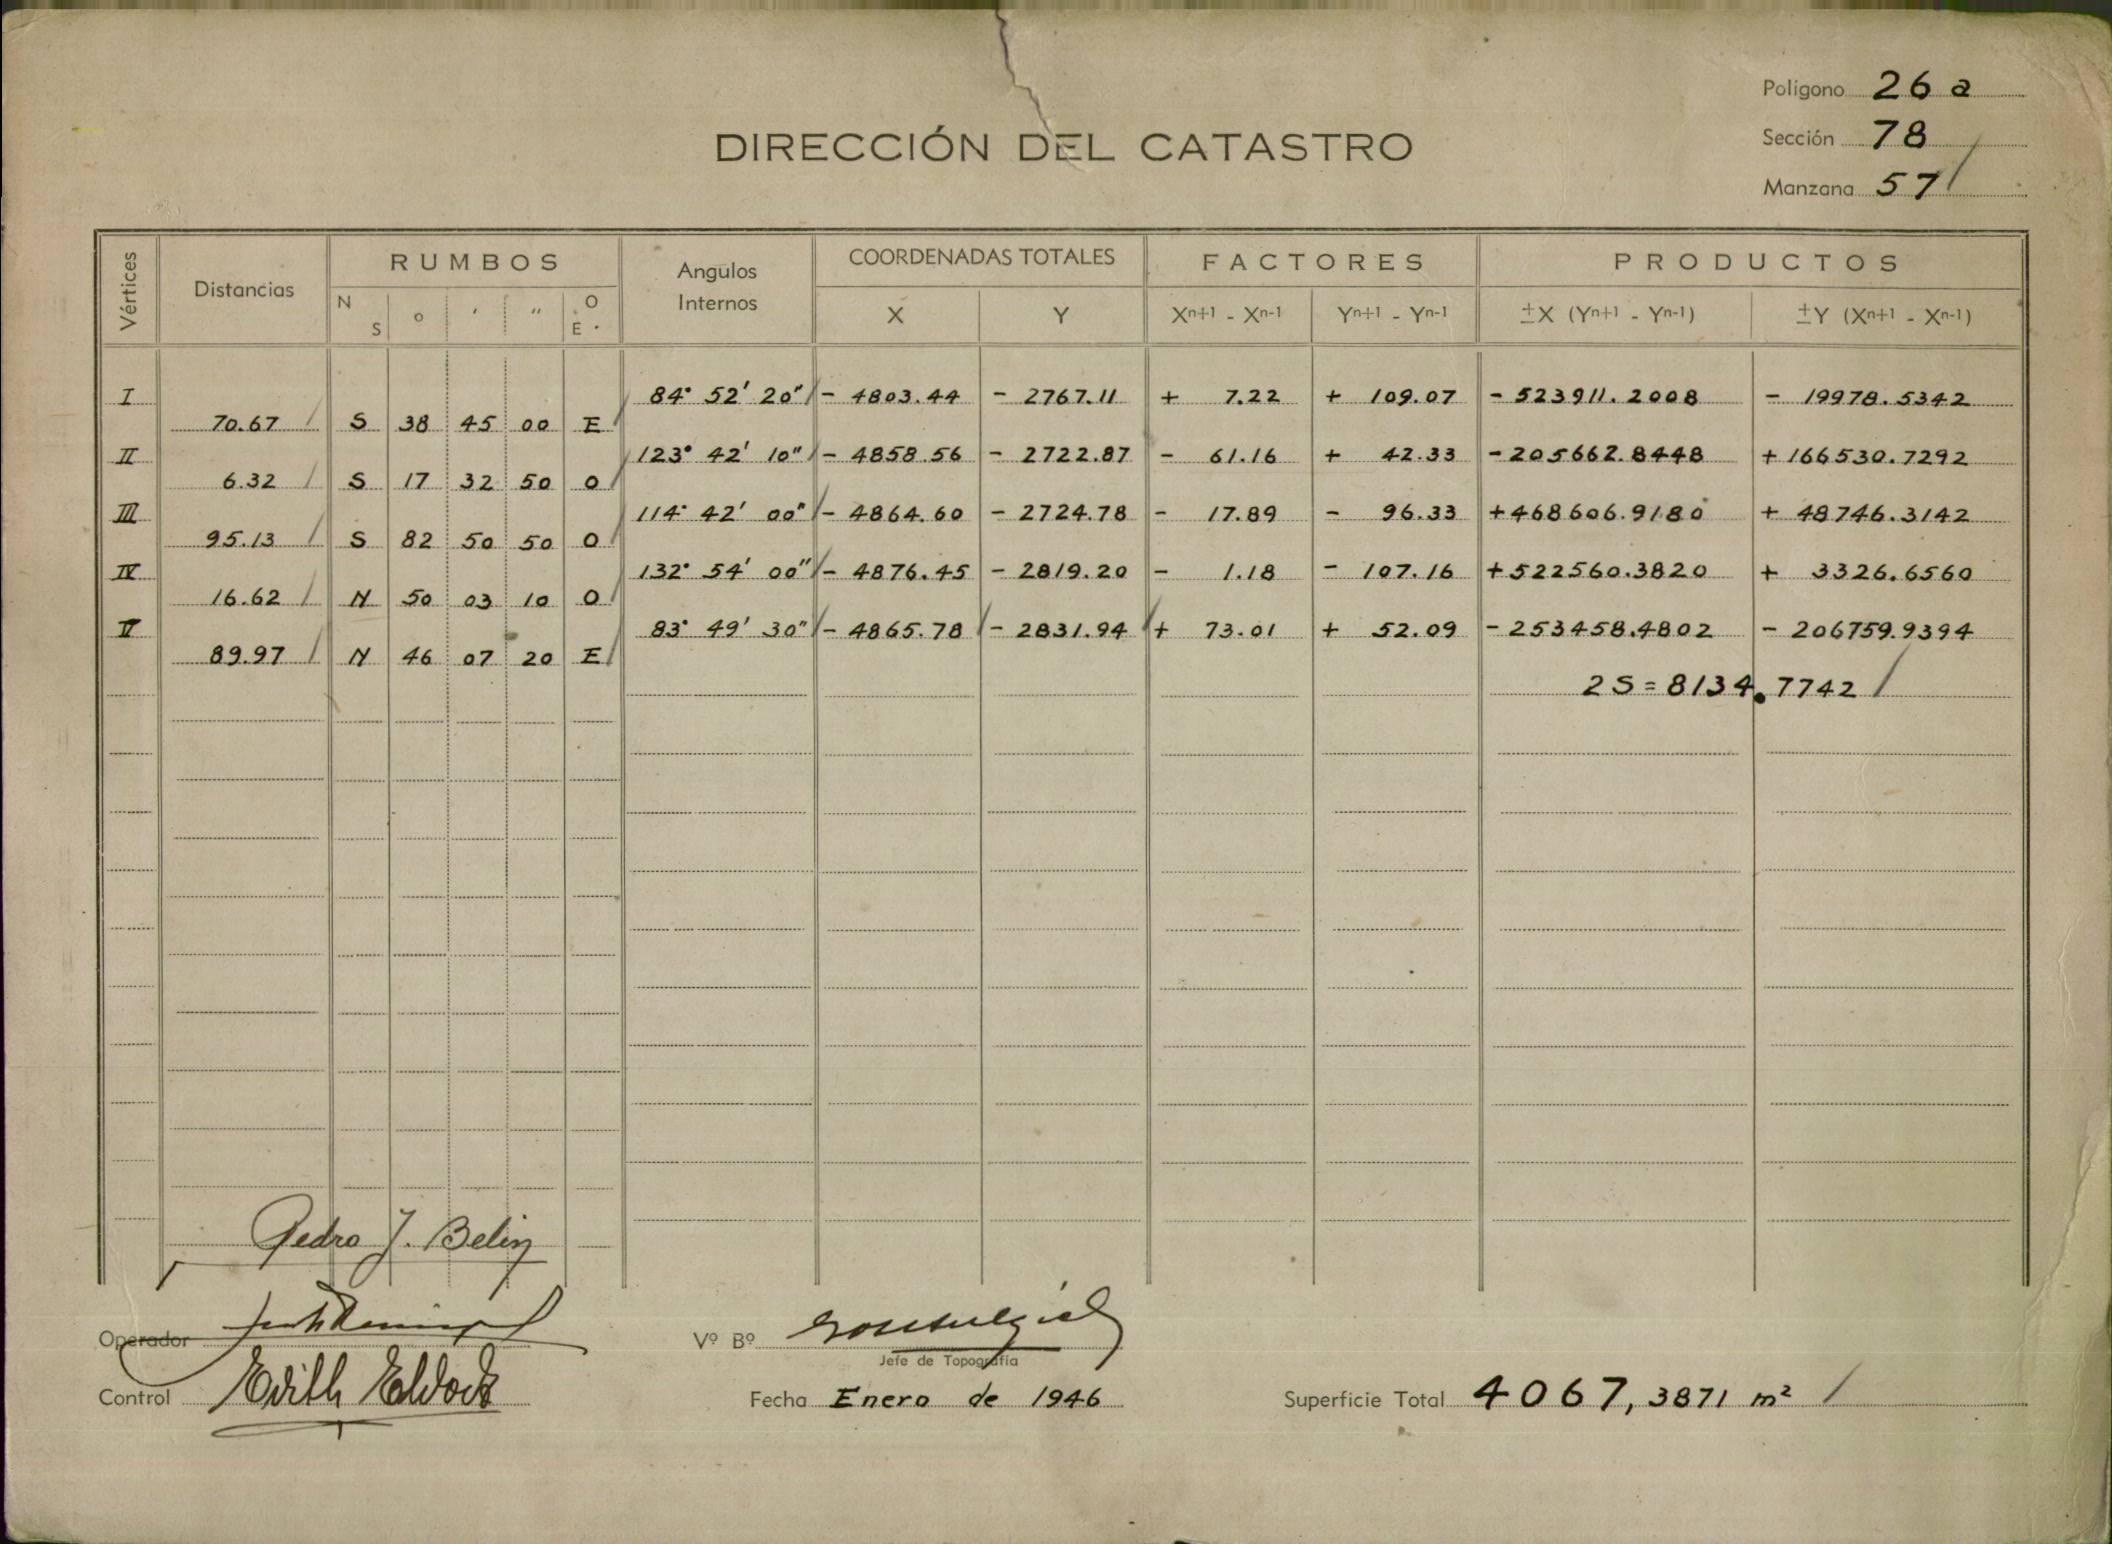 Polígono 26 a
DIRECCIÓN DEL CATASTRO
Sección 78
Manzana 57
Vértices Distancias RUMBOS Angulos Internos COORDENADAS TOTALES FACTORES PRODUCTOS
N S ° ' " O E. X Y Xn+1 - Xn-1 Yn+1 - Yn-1 ±X (Yn+1 - Yn-1) ±Y (Xn+1 - Xn-1)
I 84° 52' 20" - 4803.44 - 2767.11 + 7.22 + 109.07 - 523911.2008 - 19978.5342
70.67 S 38 45 00 E
II 123° 42' 10" - 4858.56 - 2722.87 - 61.16 + 42.33 - 205662.8448 + 166530.7292
6.32 S 17 32 50 O
III 114° 42' 00" - 4864.60 - 2724.78 - 17.89 - 96.33 + 468606.9180 + 48746.3142
95.13 S 82 50 50 O
IV 132° 54' 00" - 4876.45 - 2819.20 - 1.18 - 107.16 + 522560.3820 + 3326.6560
16.62 N 50 03 10 O
V 83° 49' 30" - 4865.78 - 2831.94 + 73.01 + 52.09 - 253458.4802 - 206759.9394
89.97 N 46 07 20 E
2S = 8134.7742
Pedro J. Belin
Operador
Vº Bº
Jefe de Topografía
Control Edith
Fecha Enero de 1946
Superficie Total 4067,3871 m²